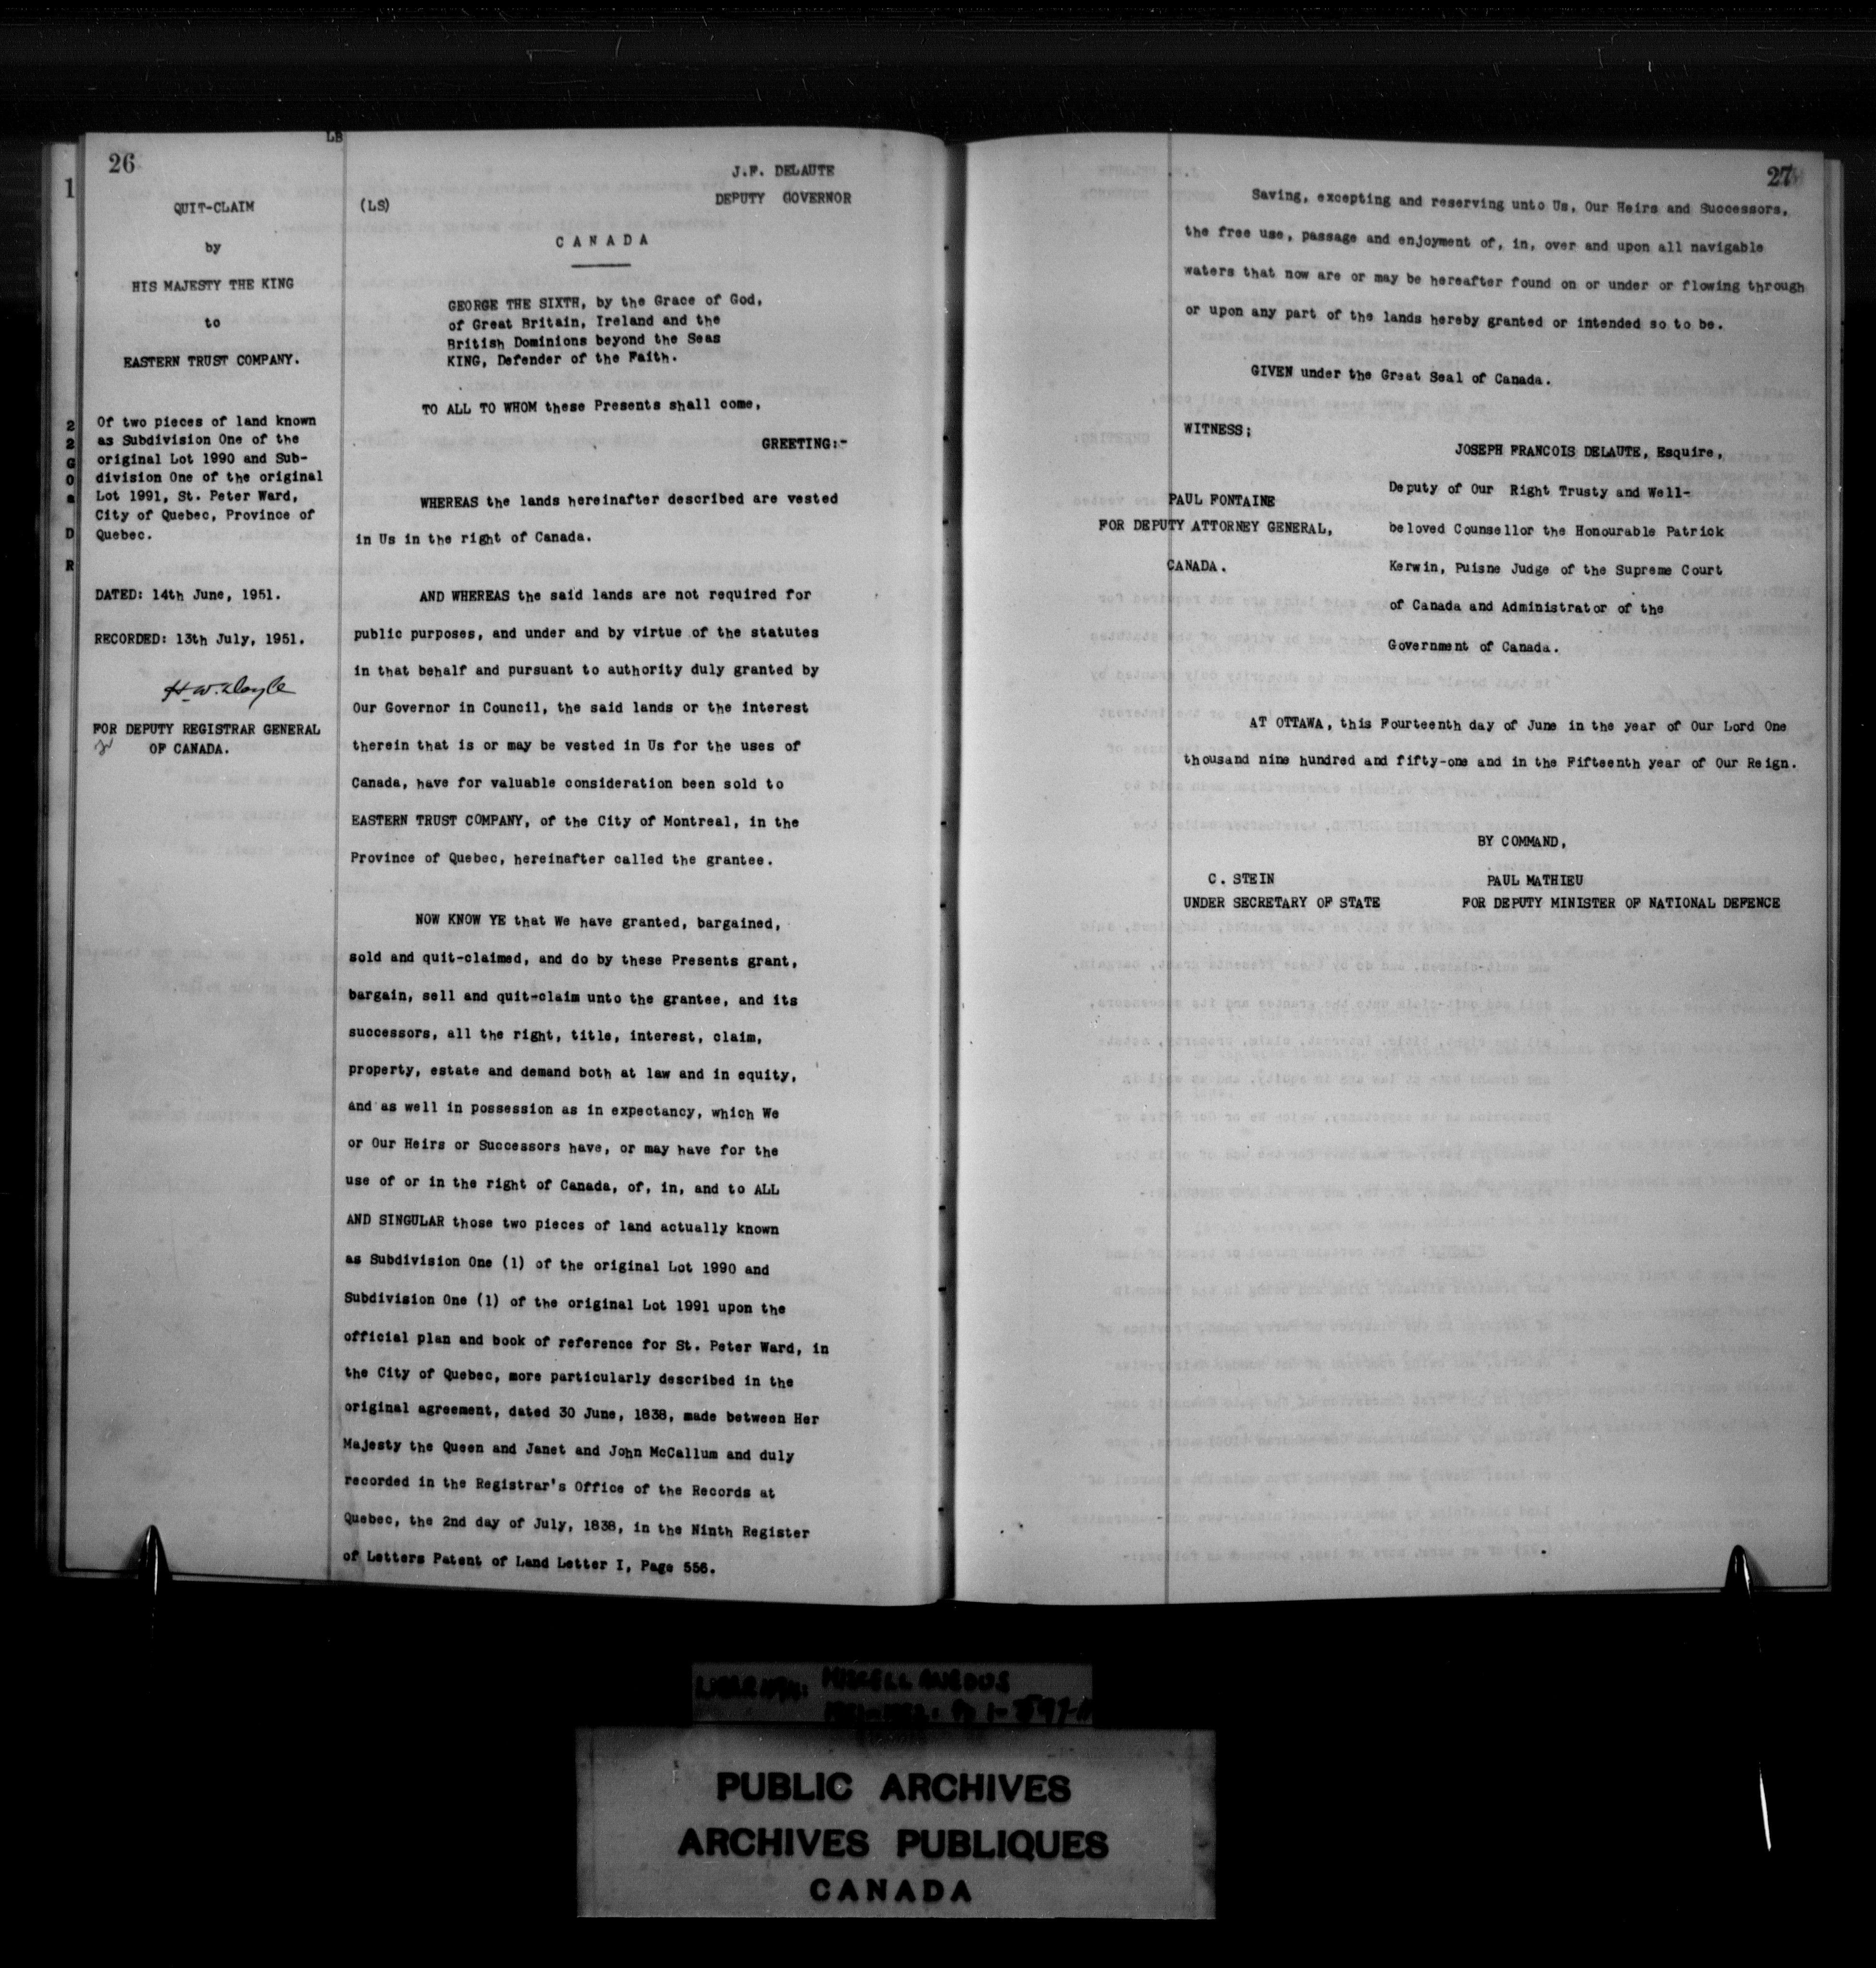 LB
26
QUIT-CLAIM
by
HIS MAJESTY THE KING
to
EASTERN TRUST COMPANY.
Of two pieces of land known
as Subdivision One of the
original Lot 1990 and Sub-
division One of the original
Lot 1991, St. Peter Ward,
City of Quebec, Province of
Quebec.
DATED: 14th June, 1951.
RECORDED: 13th July, 1951.
H.W. Doyle
FOR DEPUTY REGISTRAR GENERAL
OF CANADA.
1
2
2
G
O
a
D
R
J.F. DELAUTE
(LS) DEPUTY GOVERNOR
CANADA
GEORGE THE SIXTH, by the Grace of God,
of Great Britain, Ireland and the
British Dominions beyond the Seas
KING, Defender of the Faith.
TO ALL TO WHOM these Presents shall come,
GREETING:-
WHEREAS the lands hereinafter described are vested
in Us in the right of Canada.
AND WHEREAS the said lands are not required for
public purposes, and under and by virtue of the statutes
in that behalf and pursuant to authority duly granted by
Our Governor in Council, the said lands or the interest
therein that is or may be vested in Us for the uses of
Canada, have for valuable consideration been sold to
EASTERN TRUST COMPANY, of the City of Montreal, in the
Province of Quebec, hereinafter called the grantee.
NOW KNOW YE that We have granted, bargained,
sold and quit-claimed, and do by these Presents grant,
bargain, sell and quit-claim unto the grantee, and its
successors, all the right, title, interest, claim,
property, estate and demand both at law and in equity,
and as well in possession as in expectancy, which We
or Our Heirs or Successors have, or may have for the
use of or in the right of Canada, of, in, and to ALL
AND SINGULAR those two pieces of land actually known
as Subdivision One (1) of the original Lot 1990 and
Subdivision One (1) of the original Lot 1991 upon the
official plan and book of reference for St. Peter Ward, in
the City of Quebec, more particularly described in the
original agreement, dated 30 June, 1838, made between Her
Majesty the Queen and Janet and John McCallum and duly
recorded in the Registrar's Office of the Records at
Quebec, the 2nd day of July, 1838, in the Ninth Register
of Letters Patent of Land Letter I, Page 556.
27
Saving, excepting and reserving unto Us, Our Heirs and Successors,
the free use, passage and enjoyment of, in, over and upon all navigable
waters that now are or may be hereafter found on or under or flowing through
or upon any part of the lands hereby granted or intended so to be.
GIVEN under the Great Seal of Canada.
WITNESS;
JOSEPH FRANCOIS DELAUTE, Esquire,
Deputy of Our Right Trusty and Well-
beloved Counsellor the Honourable Patrick
Kerwin, Puisne Judge of the Supreme Court
of Canada and Administrator of the
Government of Canada.
PAUL FONTAINE
FOR DEPUTY ATTORNEY GENERAL,
CANADA.
AT OTTAWA, this Fourteenth day of June in the year of Our Lord One
thousand nine hundred and fifty-one and in the Fifteenth year of Our Reign.
BY COMMAND,
C. STEIN
UNDER SECRETARY OF STATE
PAUL MATHIEU
FOR DEPUTY MINISTER OF NATIONAL DEFENCE
MISCELLANEOUS
PUBLIC ARCHIVES
ARCHIVES PUBLIQUES
CANADA